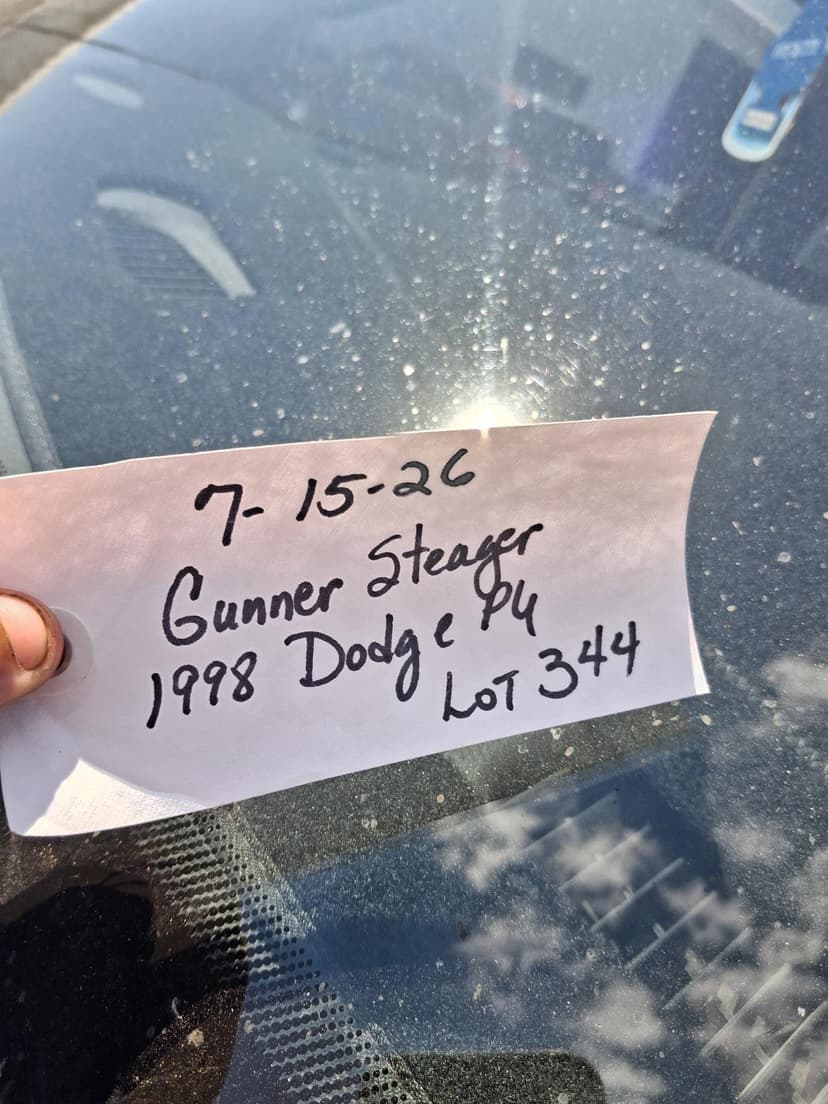 7-15-26
Gunner Steager
1998 Dodge PU
LOT 344